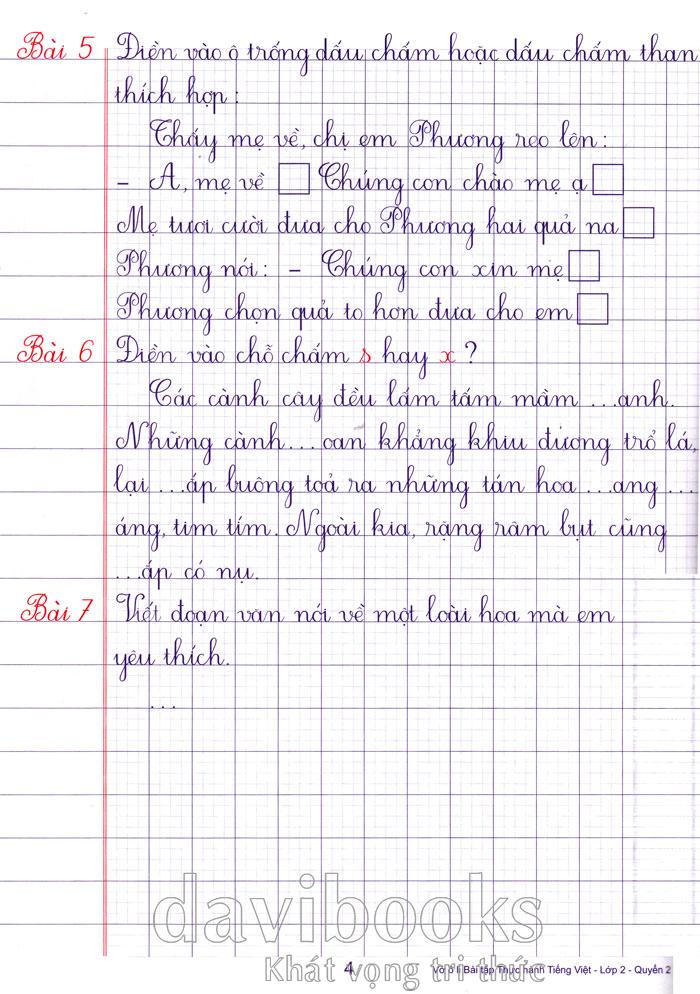 Bài 5 Điền vào ô trống dấu chấm hoặc dấu chấm than
thích hợp:
Thấy mẹ về, chị em Phương reo lên:
– A, mẹ về □ Chúng con chào mẹ ạ □
Mẹ tươi cười đưa cho Phương hai quả na □
Phương nói: – Chúng con xin mẹ □
Phương chọn quả to hơn đưa cho em □
Bài 6 Điền vào chỗ chấm s hay x ?
Các cành cây đều lấm tấm mầm ...anh.
Những cành ...oan khẳng khiu đương trổ lá,
lại ...ắp buông toả ra những tán hoa ...ang ...
áng, tim tím. Ngoài kia, rặng râm bụt cũng
...ắp có nụ.
Bài 7 Viết đoạn văn nói về một loài hoa mà em
yêu thích.
...
davibooks
Khát vọng tri thức
4 Vở ô li Bài tập Thực hành Tiếng Việt - Lớp 2 - Quyển 2